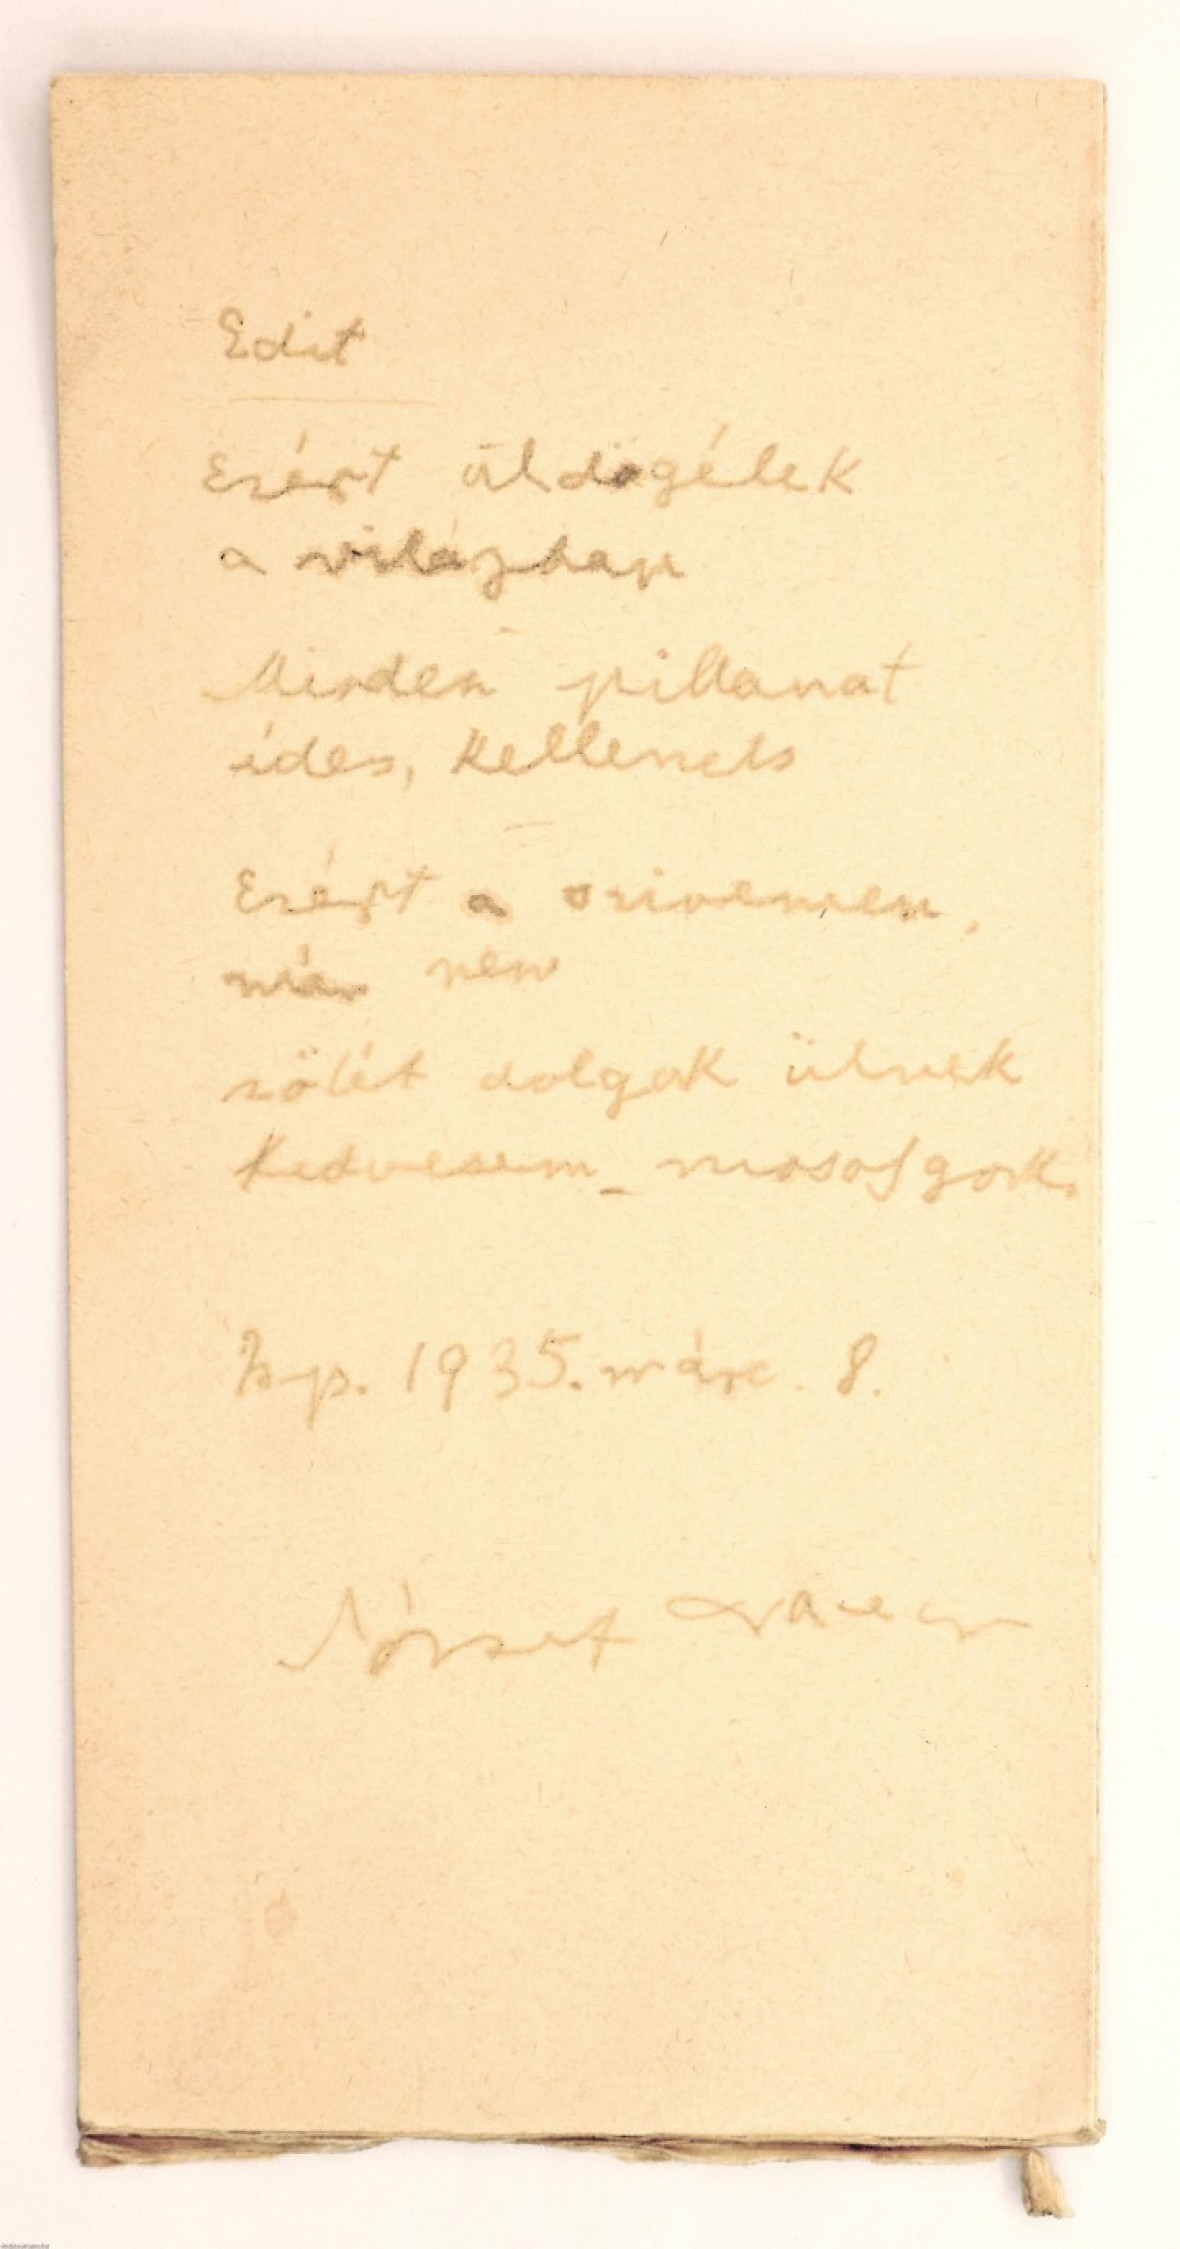 Edit
Ezért üldögélek
a világban
Minden pillanat
édes, kellemes
Ezért a szivemen,
már nem
sötét dolgok ülnek
Kedvesem_ mosolygok.
Bp. 1935. márc. 8.
József